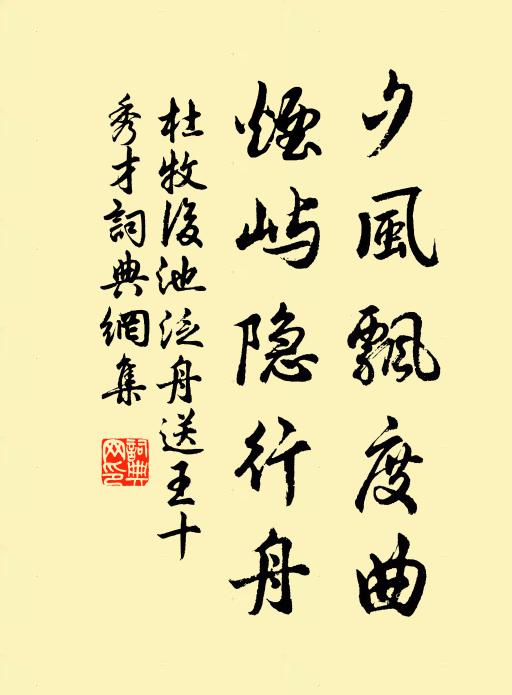 夕風飄度曲
煙屿隐行舟
杜牧後池泛舟送王十
秀才詞典網集
詞典網印